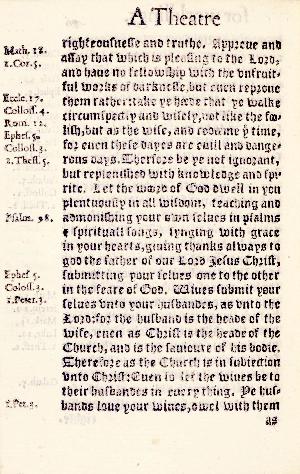 A Theatre
righteousnesse and truthe. Approue and
Math. 18.
assay that which is pleasing to the Lord,
1.Cor.5.
and haue no fellowship with the vnfruit-
ful works of darknesse, but euen reproue
Eccle.17.
them rather: take ye hede that ye walke
Coloss. 4.
circumspectly and wisely, not like the foo-
Rom. 12.
lish, but as the wise, and redeme yͤ time,
Ephes. 5.
for euen these dayes are euill and dange-
Coloss. 3.
rous days. Therfore be ye not ignorant,
2.Thess. 5.
but replenished with knowledge and spi-
rite. Let the word of God dwell in you
plentuously in all wisdom, teaching and
Psalm. 98.
admonishing your own selues in psalms
& spirituall songs, synging with grace
in your hearts, giuing thanks always to
god the father of our Lord Jesus Christ,
Ephes 5.
submitting your selues one to the other
Coloss. 3.
in the feare of God. Wiues submit your
1.Peter.3.
selues vnto your husbandes, as vnto the
Lord: for the husband is the heade of the
wife, euen as Christ is the heade of the
Church, and is the sauioure of his bodie.
Therefore as the Church is in subiection
vnto Christ: Euen so let the wiues be to
their husbandes in euery thing. Ye hus-
1.Pet. 3.
bands loue your wiues, dwel with them
as